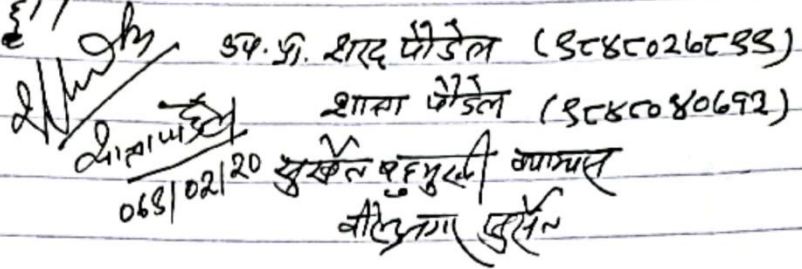 उप.प्रा. शरद पौडेल (९८४८०२६८९९)
शान्ता पौडेल (९८४८०४०६१२)
०६९|०२|२० सुर्खेत बहुमुखी क्याम्पस
वीरेन्द्रनगर सुर्खेत